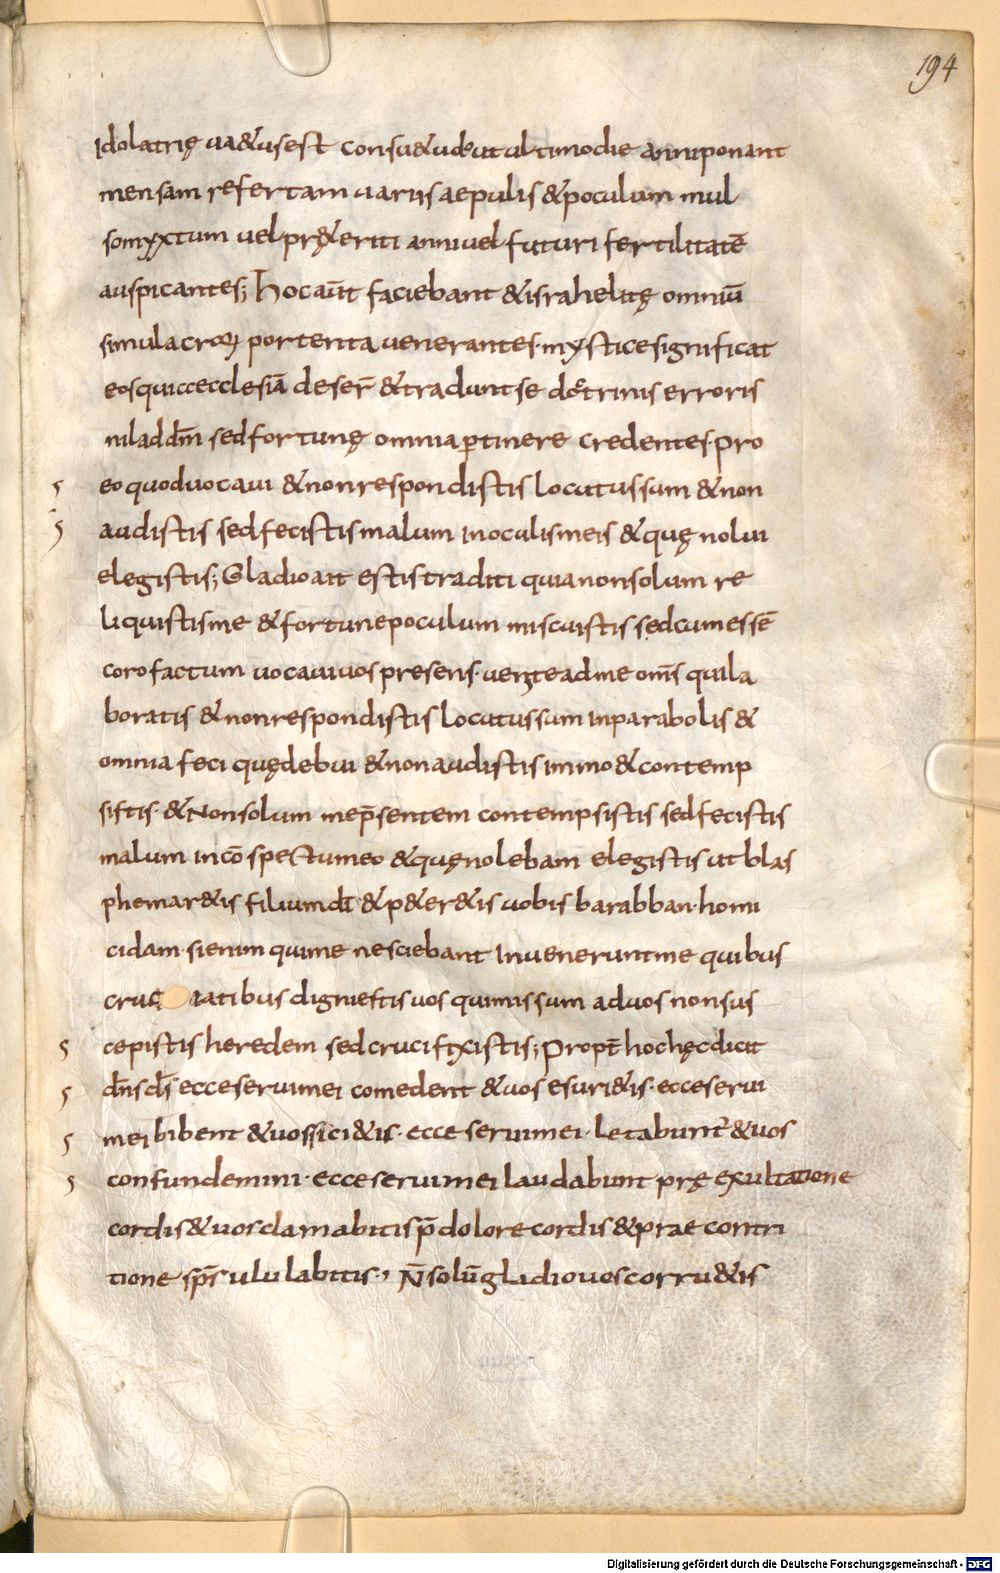 194
idolatrię ua&us est consu&udo ut ultimo die anni ponant
mensam refertam uariis aepulis & poculum mul
so myxtum uel pr&eriti anni uel futuri fertilitatē
auspicantes; hoc aūt faciebant & israhelitę omniū
simulacroꝝ portenta uenerantes. mystice significat
eos qui ecclesiā deser̄ & tradunt se doctrinis erroris
nil ad dm̄ sed fortunę omnia ꝑtinere credentes. pro
eo quod uocaui & non respondistis locutus sum & non
audistis sed fecistis malum in oculis meis & quę nolui
elegistis; Gladio ait estis traditi quia non solum re
liquistis me & fortune poculum miscuistis sed cum essē
caro factum uocaui uos presens. uenite ad me om̄s qui la
boratis & non respondistis locutus sum in parabolis &
omnia feci quę debui & non audistis immo & contemp
sistis. & Non solum me p̄sentem contempsistis sed fecistis
malum in cōspectu meo & quę nolebam elegistis ut blas
phemar&is filium dī & p&er&is uobis barabban. homi
cidam. si enim qui me nesciebant inuenerunt me quibus
cruciatibus digni estis uos qui missum ad uos non sus
cepistis heredem sed crucifixistis; Propt̄ hoc hęc dicit
dn̄s ds̄ ecce serui mei comedent & uos esuri&is. ecce serui
mei bibent & uos sici&is. ecce serui mei. letabunt̄ & uos
confundemini. ecce serui mei laudabunt prę exultatione
cordis & uos clamabitis p̄ dolore cordis & prae contri
tione sp̄s ululabitis, N̄ solū gladio uos corru&is
Digitalisierung gefördert durch die Deutsche Forschungsgemeinschaft - DFG